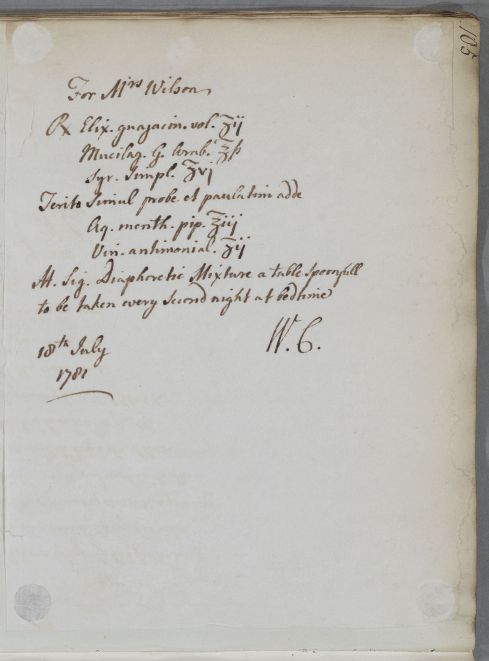 105
For Mrs Wilson
℞ Elix. guajacin. vol. ʒij
Mucilag. G. Arab. ℥ß
Syr. Simpl. ʒvj
Terito Simul probe et paulatim adde
Aq. menth. pip. ℥iij
Vin. antimonial. ʒij
M. Sig. Diaphoretic Mixture a table Spoonfull
to be taken every Second night at bedtime
W. C.
18th July
1781